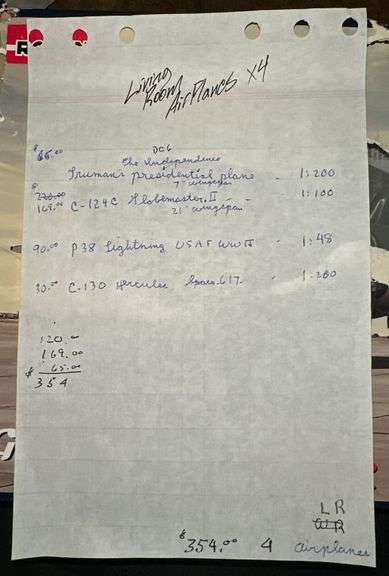 Living
Room
AirPlanes X4
DC6
$65.00 The Independence
Truman's presidential plane - 1:200
7" wingspan
$
220.00 1:100
169.00 C-124C Globemaster II -
21" wingspan
90.00 P38 Lightning USAF WWII - 1:48
30.00 C-130 Hercules 617 - 1:200
120.00
169.00
65.00
$ 354
LR
WR
$354.00 4 airplanes